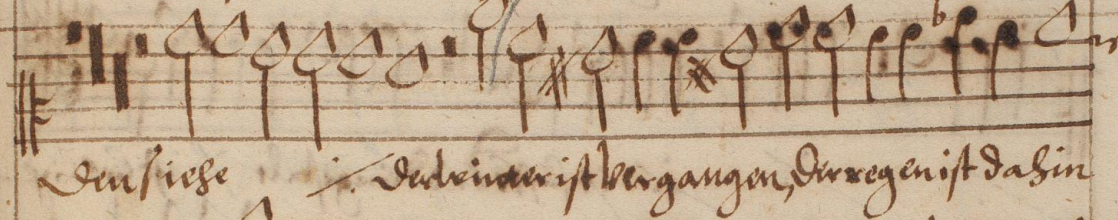 den siehe ·/· der winter ist vergangen, der regen ist dahin